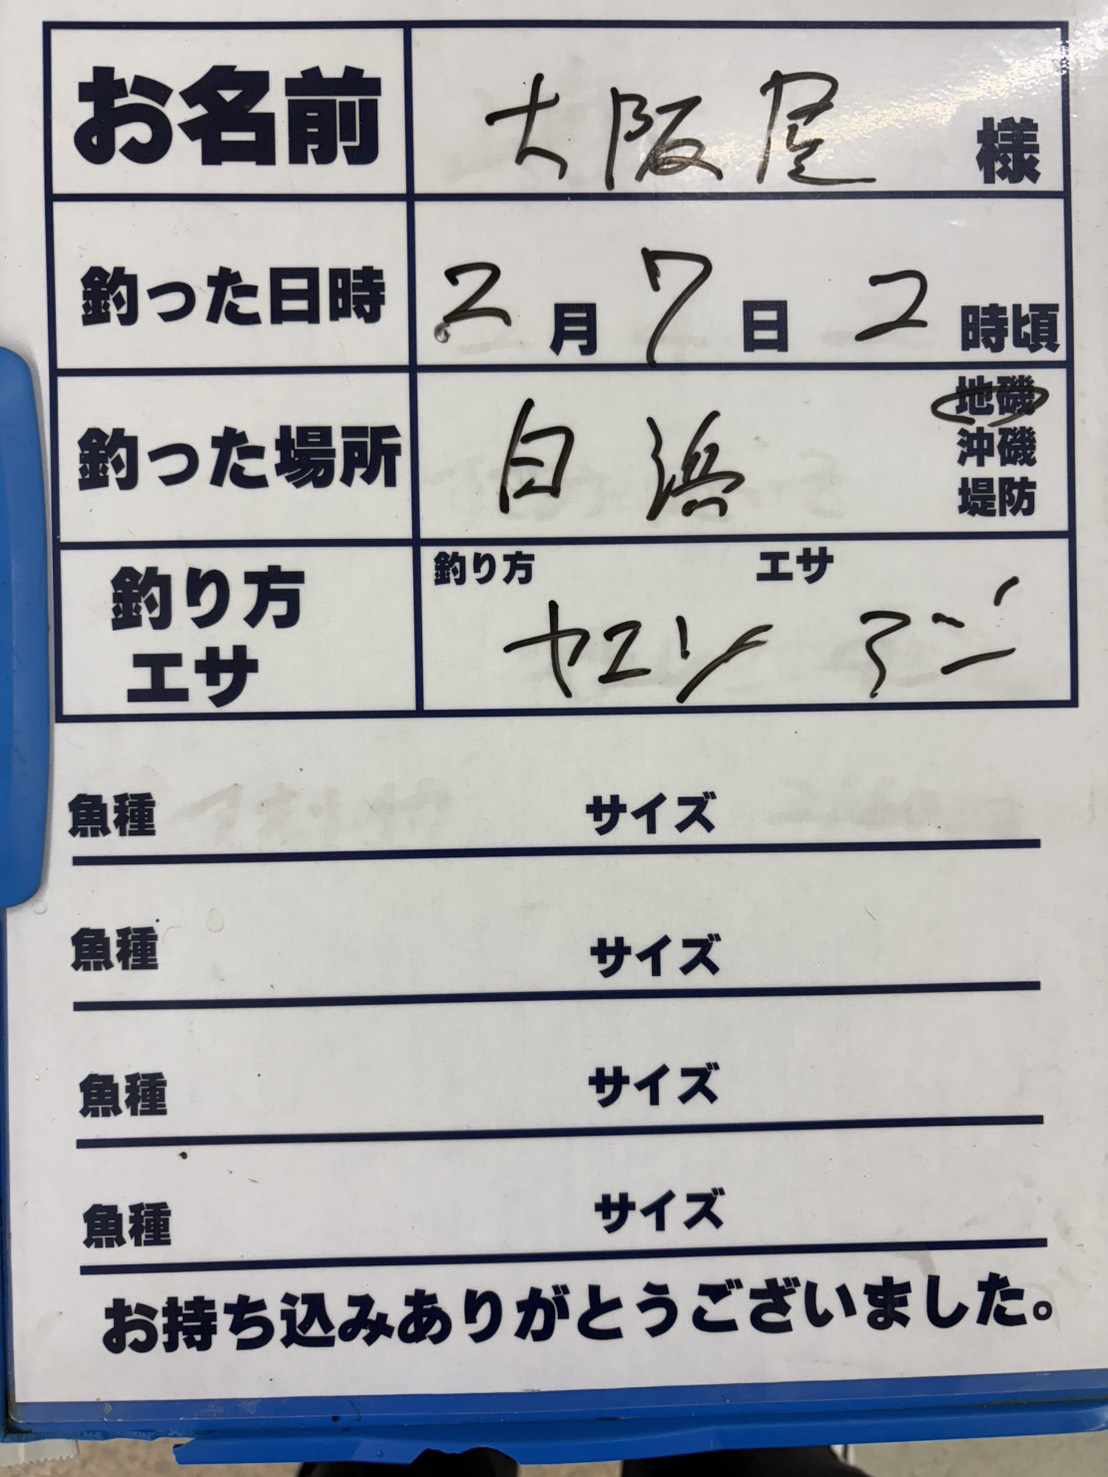 お名前 大阪屋 様
釣った日時 2月7日 2時頃
釣った場所 白浜 地磯
沖磯
堤防
釣り方 エサ
釣り方
エサ ヤエン アジ
魚種 サイズ
魚種 サイズ
魚種 サイズ
魚種 サイズ
お持ち込みありがとうございました。